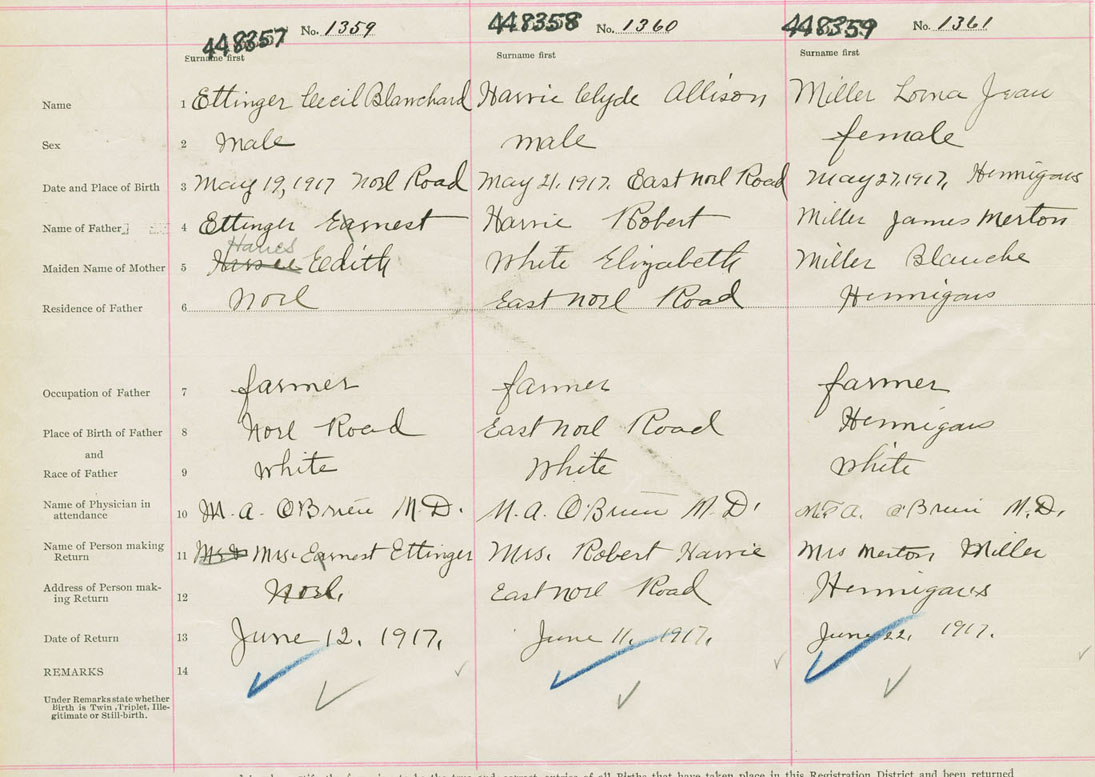 448357 No. 1359 448358 No. 1360 448359 No. 1361
Surname first Surname first Surname first
Name 1 Ettinger Cecil Blanchard Harvie Clyde Allison Miller Lorna Jean
Sex 2 Male male female
Date and Place of Birth 3 May 19, 1917 Noel Road May 21. 1917. East Noel Road May 27, 1917, Hennigars
Name of Father 4 Ettinger Earnest Harvie Robert Miller James Merton
Hanes
Maiden Name of Mother 5 Edith White Elizabeth Miller Blanche
Residence of Father 6 Noel East Noel Road Hennigars
Occupation of Father 7 farmer farmer farmer
Place of Birth of Father 8 Noel Road East Noel Road Hennigars
and
Race of Father 9 White White White
Name of Physician in
attendance 10 M. A. O'Brien M.D. M. A. O'Brien M.D. A. O'Brien M.D.
Name of Person making
Return 11 Mrs. Earnest Ettinger Mrs. Robert Harvie Mrs Merton Miller
Address of Person mak-
ing Return 12 Noel, East Noel Road Hennigars
Date of Return 13 June 12. 1917. June 11. 1917. June 22. 1917.
REMARKS 14
Under Remarks state whether
Birth is Twin, Triplet, Ille-
gitimate or Still-birth.
the true and correct entries of all Births that have taken place in this Registration District and been returned